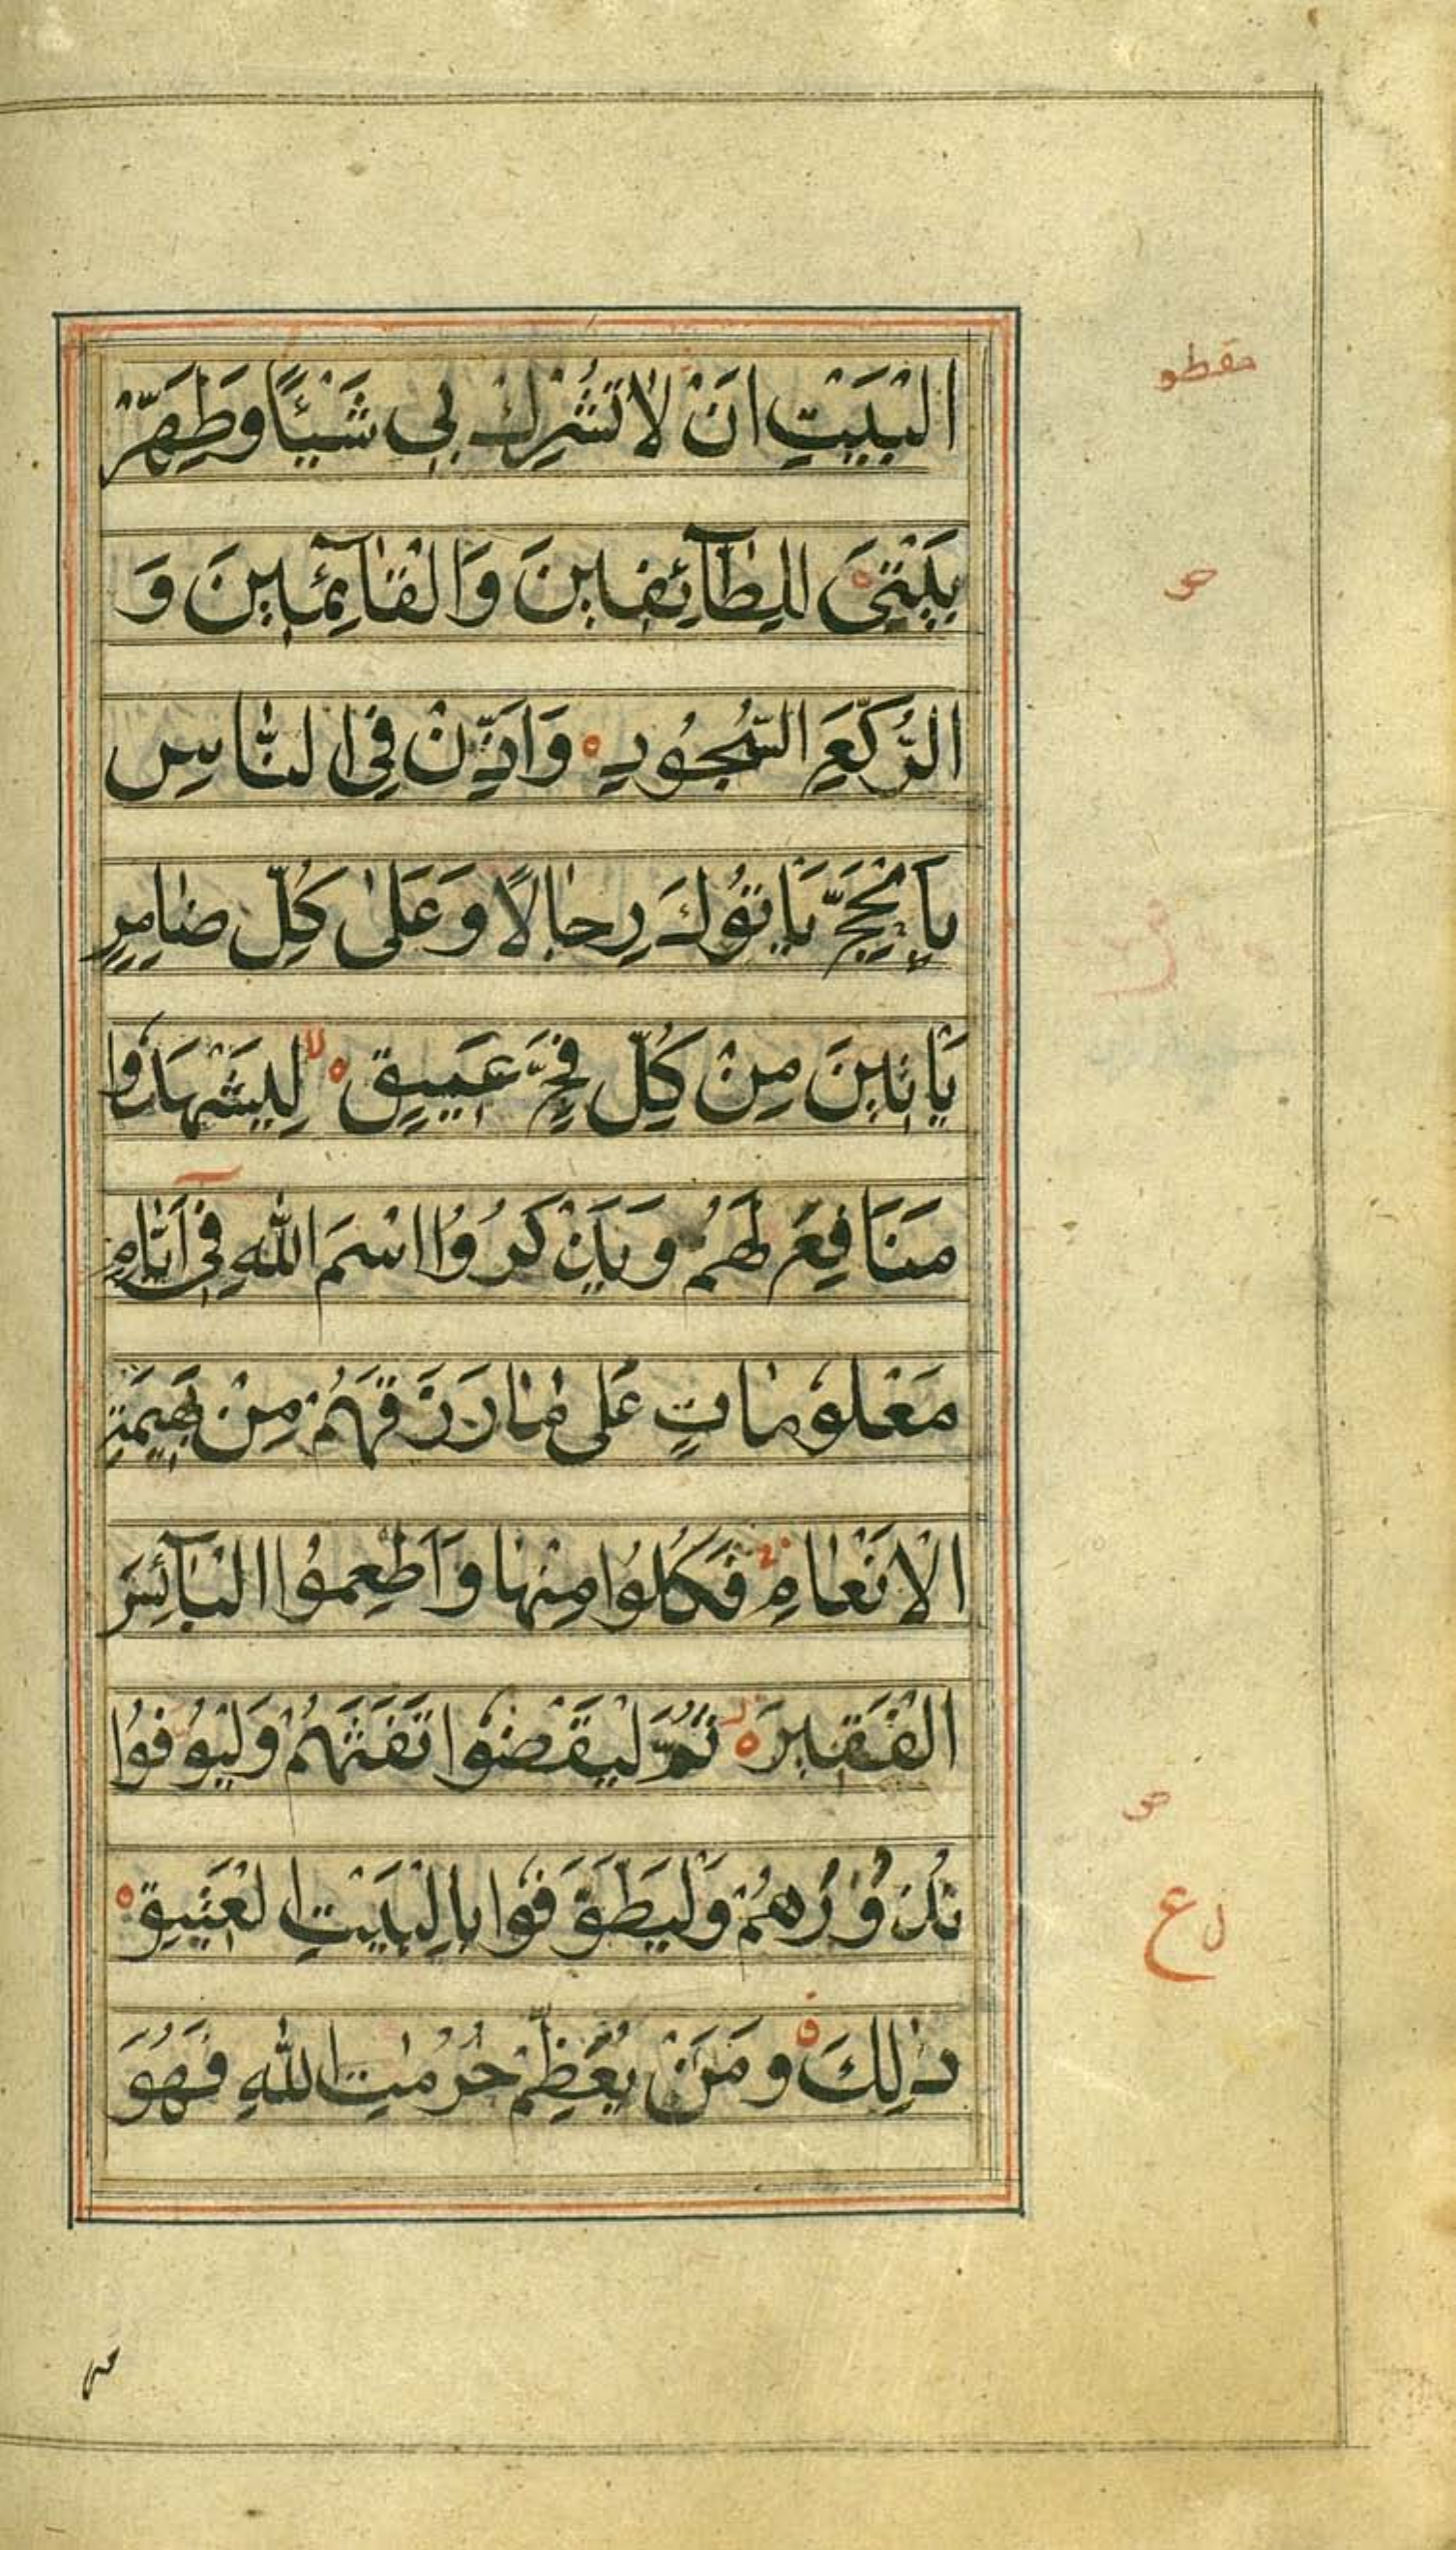 الْبَيْتِ اَنْ لَا تُشْرِكْ بِى شَيْئًا وَطَهِّرْ
بَيْتِىَ لِلطَّآئِفِينَ وَالْقَآئِمِينَ وَ
الرُّكَّعِ السُّجُودِ ه وَاَذِّنْ فِى النَّاسِ
بِالْحَجِّ يَاْتُوكَ رِجَالًا وَعَلٰى كُلِّ ضَامِرٍ
يَاْتِينَ مِنْ كُلِّ فَجٍّ عَمِيقٍ ه لا لِيَشْهَدُوا
مَنَافِعَ لَهُمْ وَيَذْكُرُوا اسْمَ اللّٰهِ فِى اَيَّامٍ
مَعْلُومَاتٍ عَلٰى مَا رَزَقَهُمْ مِنْ بَهِيمَةِ
الْاَنْعَامِ فَكُلُوا مِنْهَا وَاَطْعِمُوا الْبَآئِسَ
الْفَقِيرَ ه ثُمَّ لْيَقْضُوا تَفَثَهُمْ وَلْيُوفُوا
نُذُورَهُمْ وَلْيَطَّوَّفُوا بِالْبَيْتِ الْعَتِيقِ ه
ذٰلِكَ وَمَنْ يُعَظِّمْ حُرُمٰتِ اللّٰهِ فَهُوَ